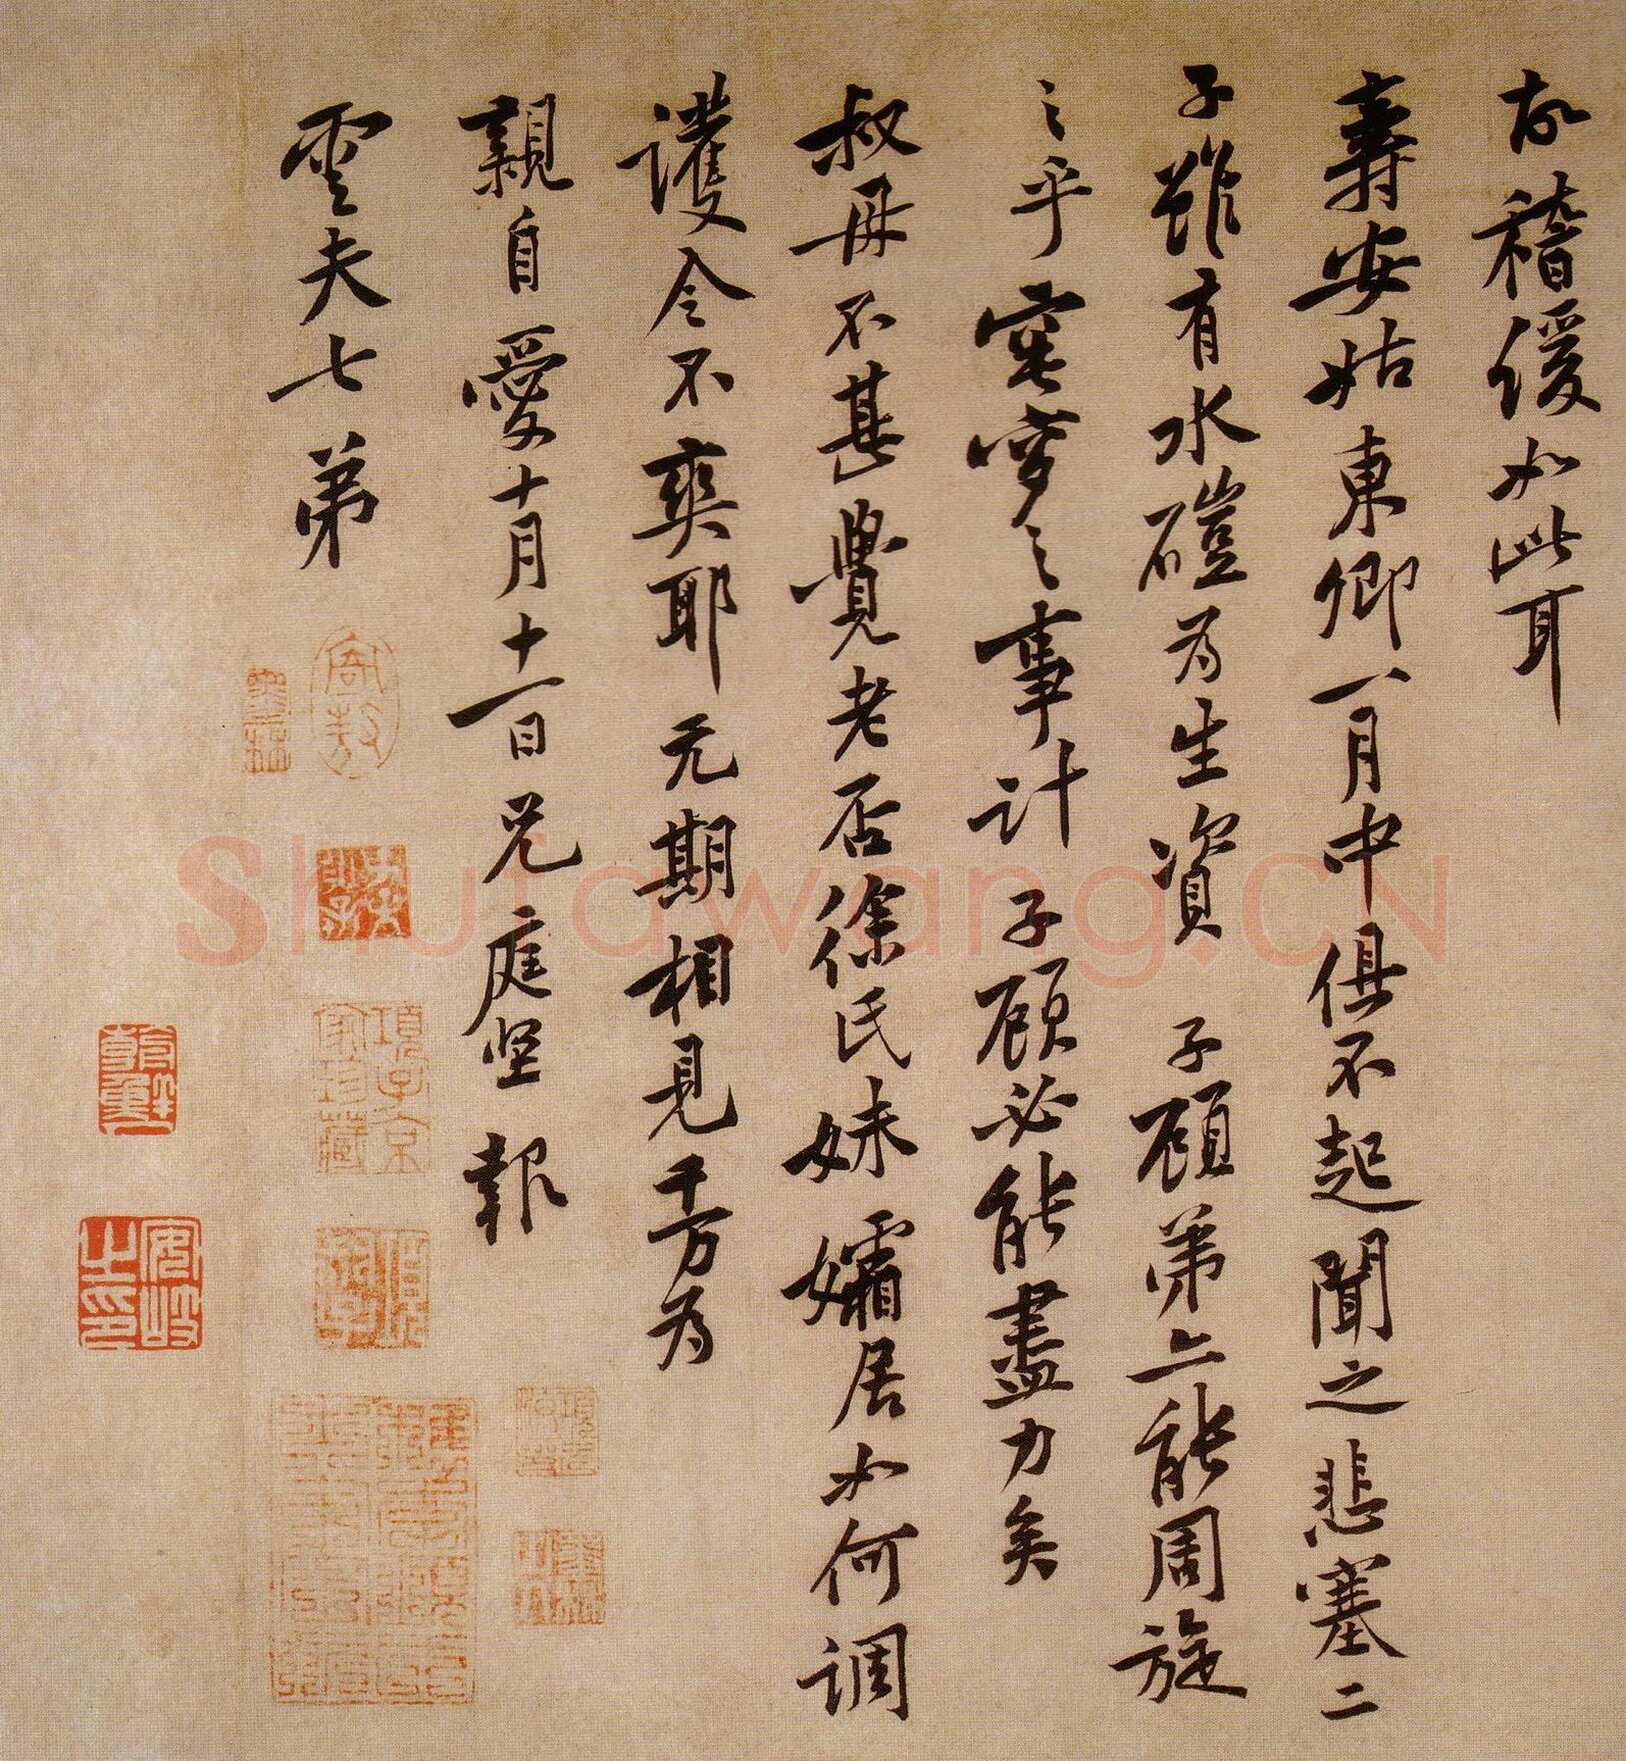 故稽緩如此耳
壽安姑東卿一月中俱不起聞之悲塞二
子雖有水磑為生資 子顧弟亦能周旋
之乎窀穸之事計 子顧必能盡力矣
叔母不甚覺老否徐氏妹孀居如何調
護令不爽耶 元期相見千万為
親自愛十月十一日兄庭坚 報
雲夫七弟
項子京
家珍藏
shufawang.CN